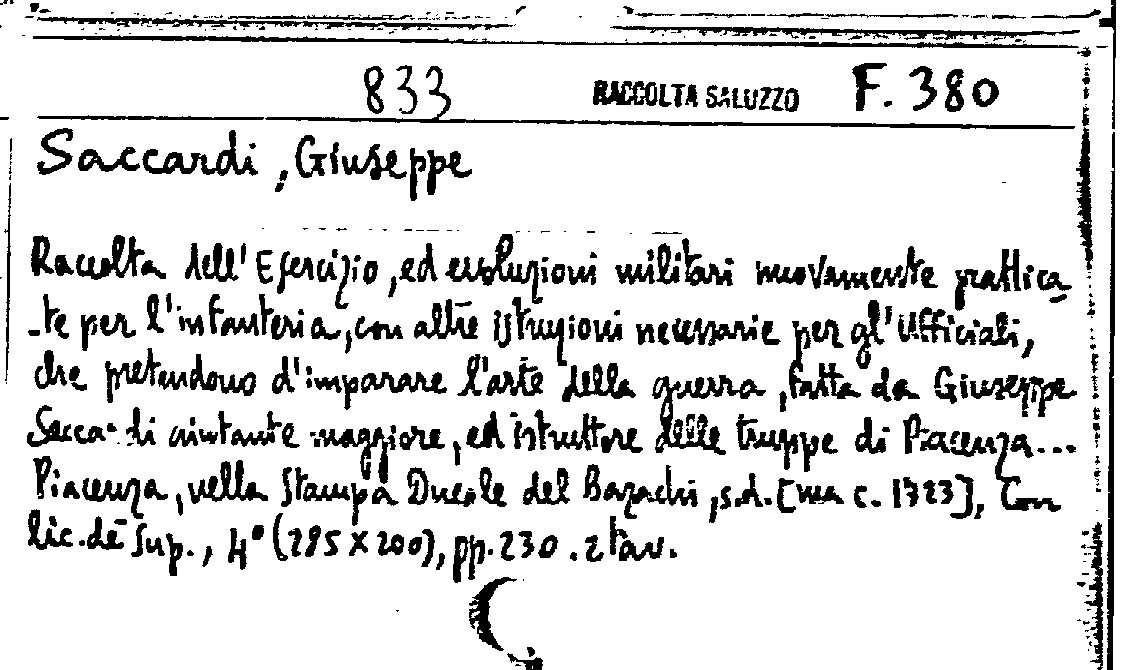 833 RACCOLTA SALUZZO F. 380
Saccardi, Giuseppe
Raccolta dell' Esercizio, ed evoluzioni militari nuovamente prattica
-te per l'infanteria, con altre istruzioni necessarie per gl'Ufficiali,
che pretendono d'imparare l'arte della guerra, fatta da Giuseppe
Saccardi aiutante maggiore, ed istruttore delle truppe di Piacenza...
Piacenza, nella Stampa Ducale del Bazachi, s.d. [ma c. 1723], Con
lic. de Sup., 4° (285 x 200), pp. 230. 2 tav.